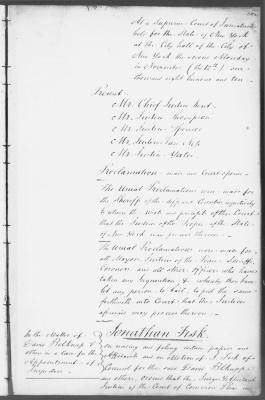 At a Supreme Court of Judicature
held for the State of New York
at the City Hall of the City of
New York the second Monday
in November (the 12th) one
thousand eight hundred and ten
Present
Mr. Chief Justice Kent
Mr. Justice Thompson
Mr. Justice Spencer
Mr. Justice Van Ness
Mr. Justice Yates
Proclamation made and Court opened
The Usual Proclamations were made for
the Sheriffs of the different Counties respectively
to return the writs and precepts of this Court
that the Justices of the People of the State
of New York may proceed thereon
The Usual Proclamations were made for
all Mayors Justices of the Peace Sheriffs
Coroners and all other officers who have
taken any Inquisitions & whereby they have
let any person to Bail, to put the same
forthwith into Court that the Justices
aforesaid may proceed thereon
In the Matter of
David Belknap and
others in a Case for the
Appointment of
Inspectors
Jonathan Fisk
On reading and filing certain papers and
Affidavits and on Motion of J. Fisk of
Counsel for the said David Belknap
any others, Ordered that the Judges & Assistant
Justices of the Court of Common Pleas